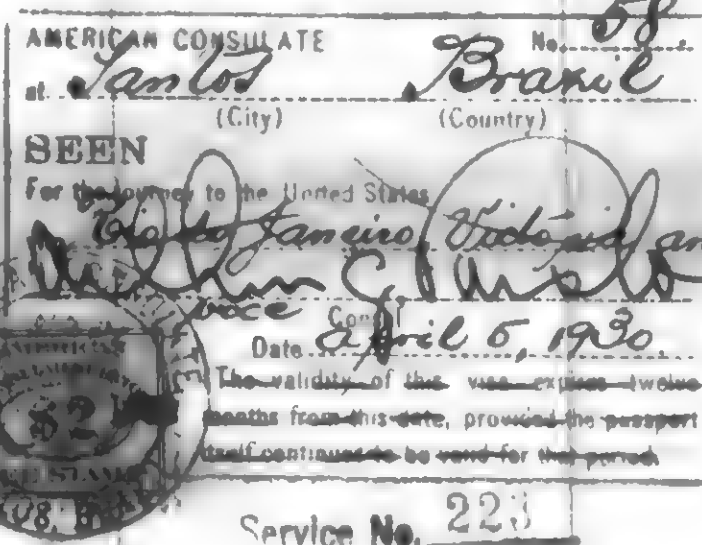 AMERICAN CONSULATE No. 58.
at Santos Brazil
(City) (Country)
SEEN
For the journey to the United States
Rio de Janeiro, Victoria an
Vice Consul
Date April 5, 1930.
The validity of this visa expires twelve
months from this date, provided the passport
itself continues to be valid for that period.
Service No. 223